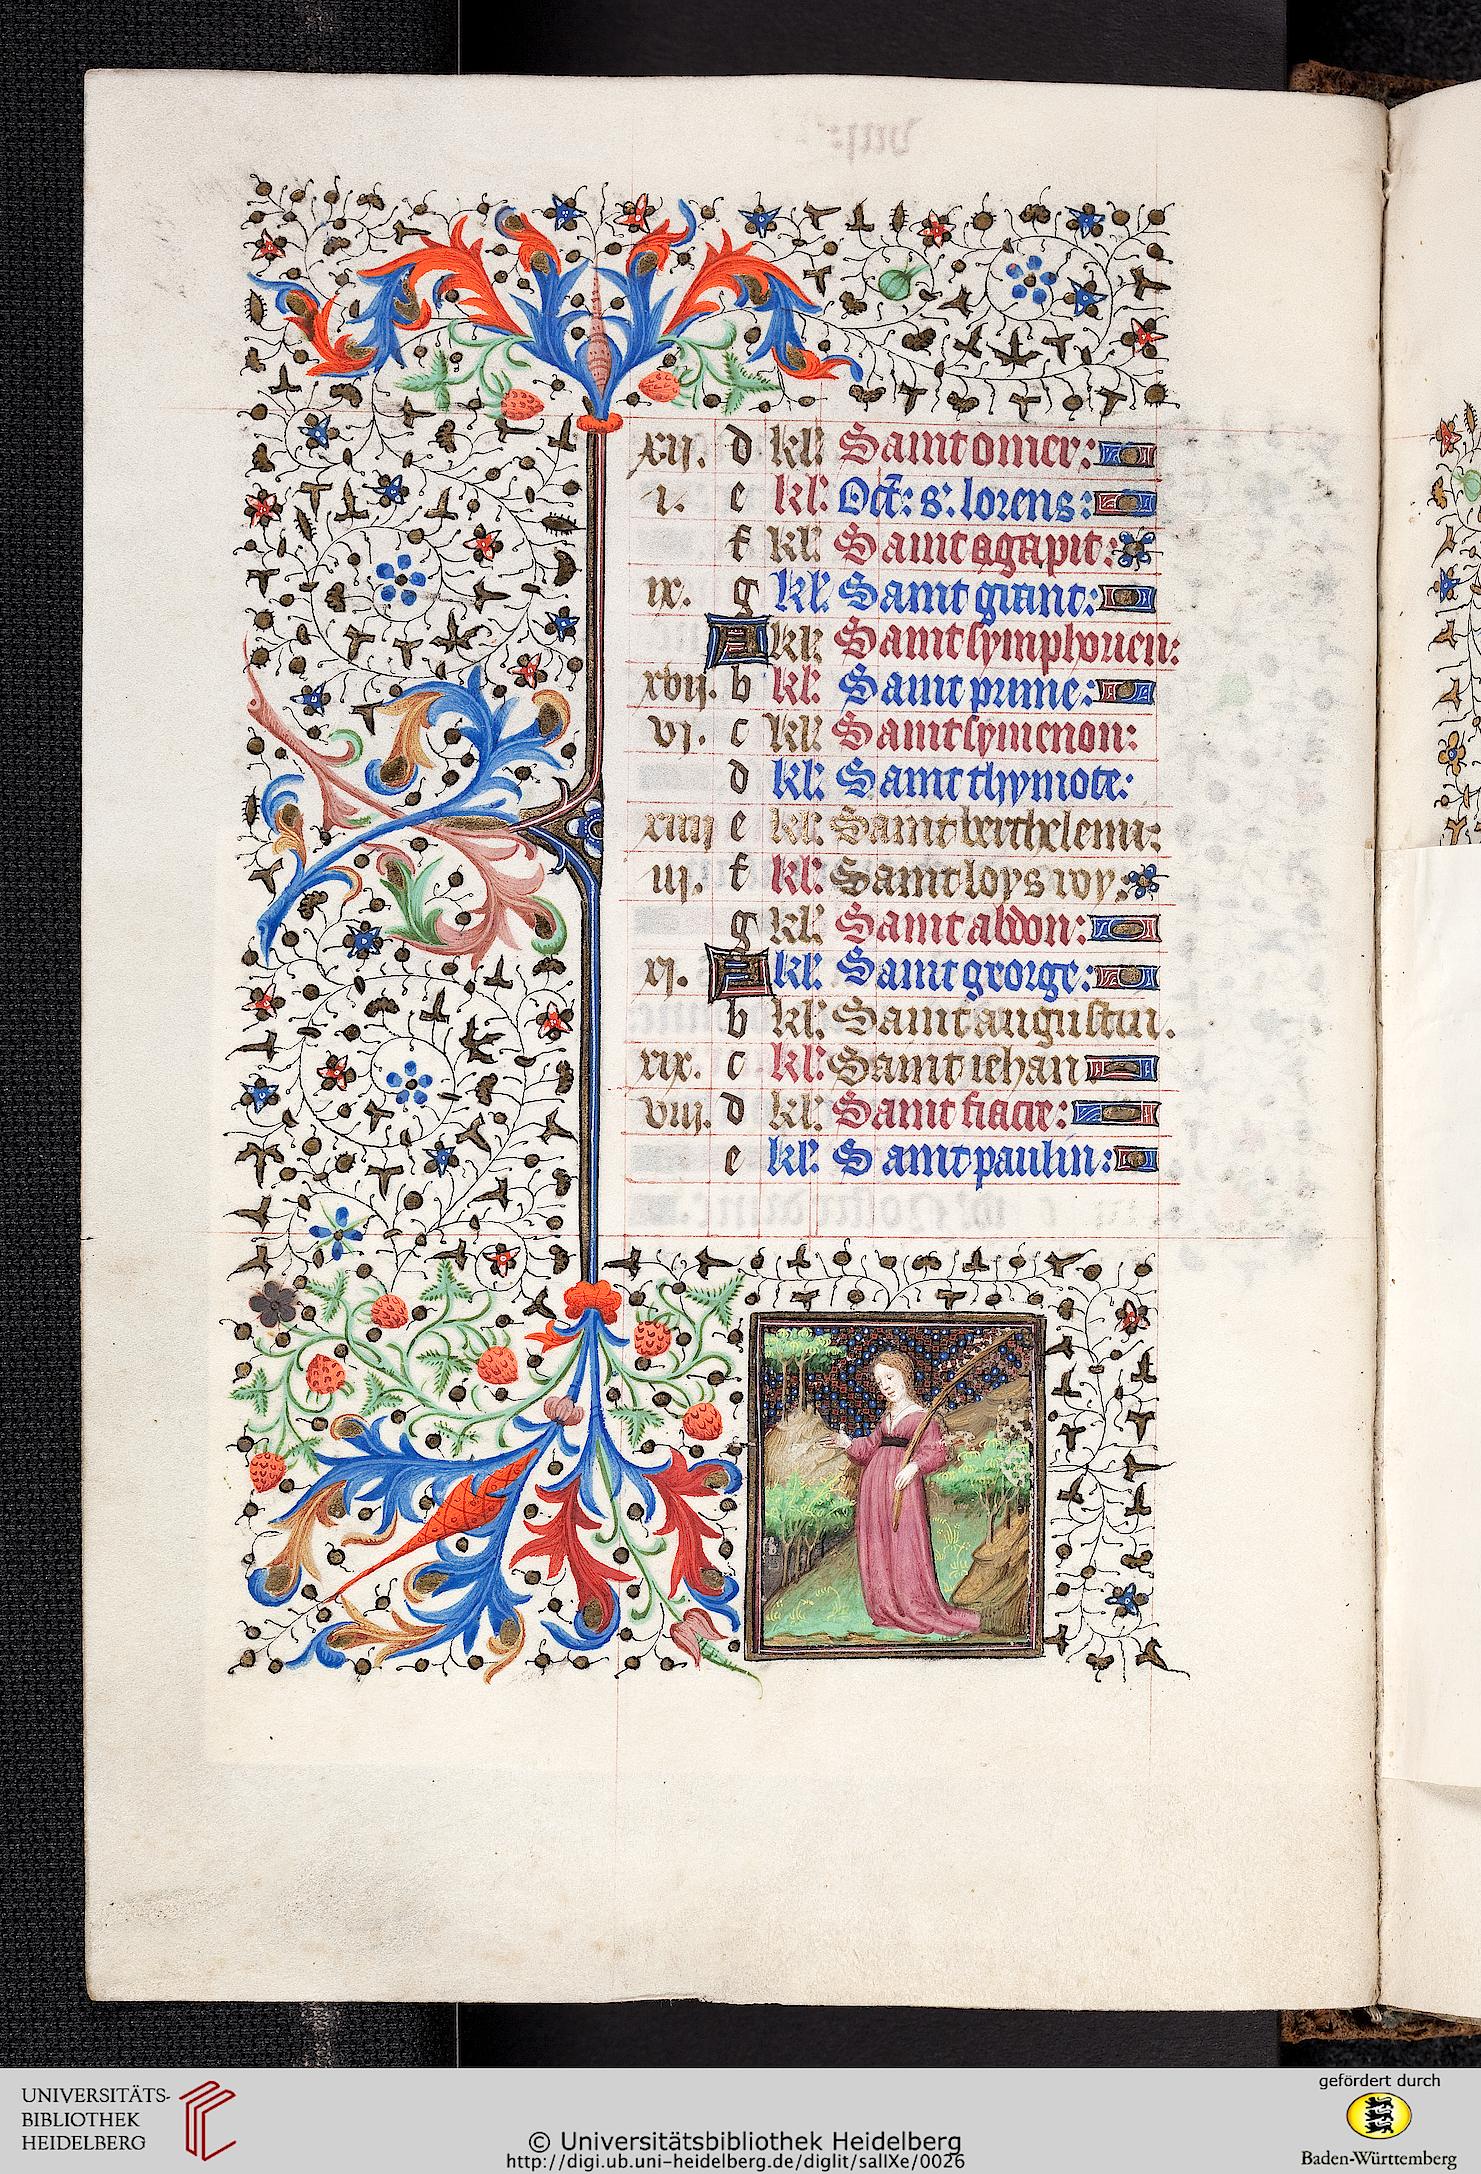 xij. d kl: Saint omer:
i. e kl: Oct: s: lorens:
f kl: Saint agapit:
ix. g kl: Saint giant:
A kl: Saint symphorien:
xvij. b kl: Saint prime:
vj. c kl: Saint symenon:
d kl: Saint thymote:
xiiij e kl: Saint berthelemi:
iij. f kl: Saint loys roy:
g kl: Saint abdon:
xj. A kl: Saint george:
b kl: Saint augustin.
xix. c kl: Saint iehan
viij. d kl: Saint fiacre:
e kl: Saint paulin:
UNIVERSITÄTS-
BIBLIOTHEK
HEIDELBERG
© Universitätsbibliothek Heidelberg
http://digi.ub.uni-heidelberg.de/diglit/salIXe/0026
gefördert durch
Baden-Württemberg